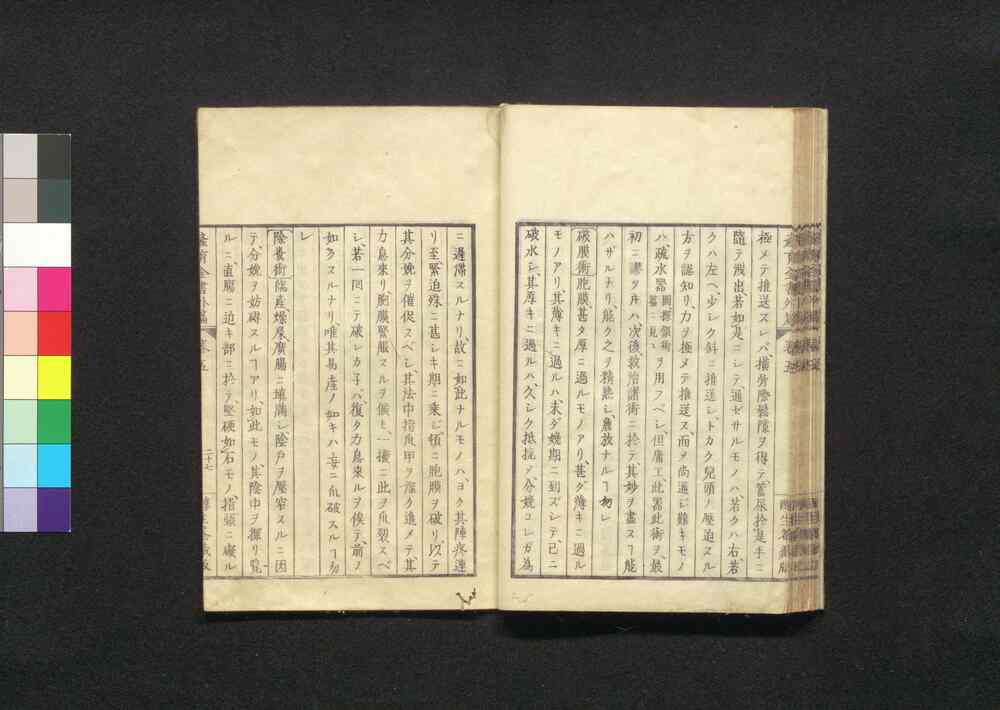 極メテ推送スレバ、横骨際鬆隙ヲ得テ蓄尿拾是手ニ
隨テ洩出、若如是ニシテ通ゼサルモノハ、若クハ右、若
クハ左ヘ、少シク斜ニ推送シ、トカク兒頭ノ壓迫スル
方ヲ認知リ、力ヲ極メテ推送ス、而ヲ尚通シ難キモノ
ハ、疏水噐ヲ用フベシ、但庸工此噐此術ヲ、最
初ニ謬ルヰハ、次後救治諸術ニ於テ、其妙ヲ盡スヿ能
ハザルナリ、能ク之ヲ精熟シ、麁放ナルヿ勿レ
破膜術胞膜、甚タ厚ニ過ルモノアリ、甚ダ薄キニ過ル
モノアリ、其薄キニ過ルハ、未ダ娩期ニ到ズシテ、已ニ
破水シ、其厚キニ過ルハ、久シク抵抗メ、分娩コレガ為
ニ遲滞スルナリ、故ニ如此ナルモノハ、ヨク其陣疼連
リ至、緊迫殊ニ甚シキ期ニ乘ジ、頓ニ胞膜ヲ破リ、以テ
其分娩ヲ催促スベシ、其法中指爪甲ヲ深ク進メテ、其
力息來リ、胞膜緊脹スルヲ候ヒ、一搔ニ此ヲ爪裂スベ
シ、若一囘ニテ破レカ子バ、復タ力息來ルヲ俟テ、前ノ
如クスルナリ、唯其易産ノ如キハ、妄ニ爪破スルヿ勿
レ
除糞術臨産燥屎廣腸ニ填滿シ、陰戸ヲ壓窄スルニ因
テ、分娩ヲ妨碍スルヿアリ、如此モノ、其陰中ヲ探リ覧
ルニ、直腸ニ迫キ部ニ於テ、堅硬如石モノ、指頭ニ礙ル
二十七